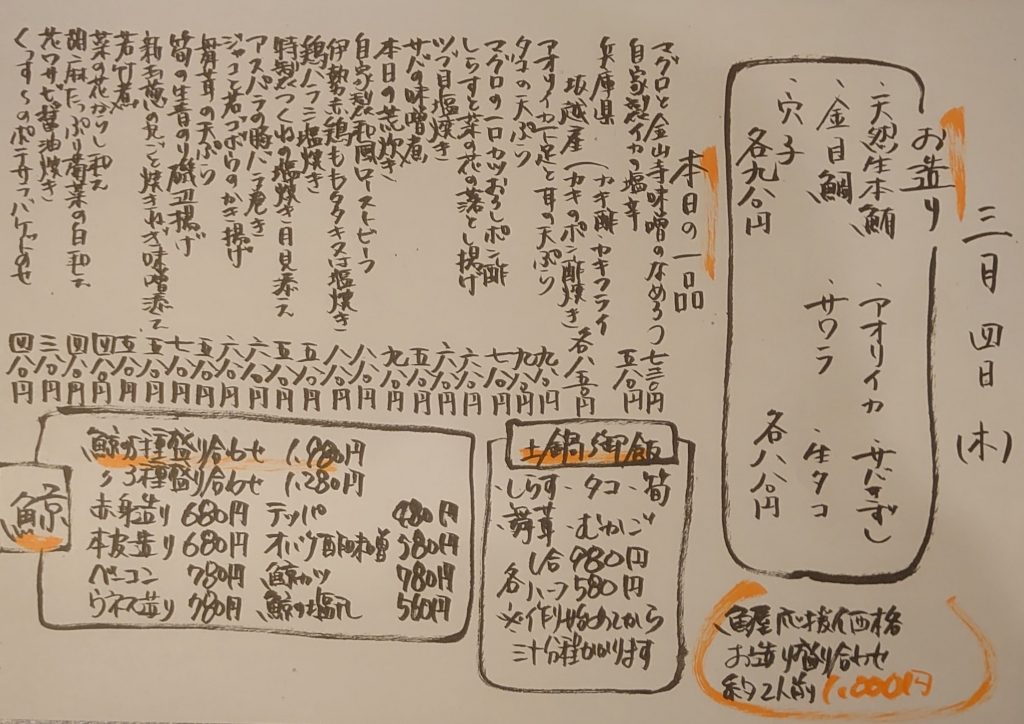 三月四日(木)
お造り
・天然生本鮪 ・アオリイカ ・サバきずし
・金目鯛 ・サワラ ・生タコ
・穴子
各九八〇円 各八八〇円
魚屋応援価格
お造り盛り合わせ
約2人前 1,000円
本日の一品
マグロと金山寺味噌のなめろう 七三〇円
自家製イカの塩辛 五八〇円
兵庫県 カキ酢 カキフライ
坂越産(カキのポン酢焼き) 各八五〇円
アオリイカ下足と耳の天ぷら 九八〇円
タチの天ぷら 九八〇円
マグロの一口カツおろしポン酢 七八〇円
しらすと菜の花の落とし揚げ 六八〇円
ツブ貝塩焼き 六八〇円
サバの味噌煮 五八〇円
本日の荒炊き 九八〇円
自家製和風ローストビーフ 八八〇円
伊勢赤鶏ももタタキ又は塩焼き 八八〇円
鶏ハラミ塩焼き 五八〇円
特製つくねの塩焼き 月見添え 五八〇円
アスパラの豚バラ巻き 六八〇円
ジャコと若ゴボウのかき揚げ 六八〇円
舞茸の天ぷら 五八〇円
筍の生青のり磯辺揚げ 七八〇円
新玉葱の丸ごと焼きねぎ味噌添え 五八〇円
若竹煮 五八〇円
菜の花からし和え 四八〇円
胡麻たっぷり菊菜の白和え 四八〇円
花ワサビ醤油焼き 三八〇円
くつすーのポテサラバケットのせ 四八〇円
土鍋御飯
・しらす ・タコ ・筍
・舞茸 ・むかご
一合 980円
各ハーフ 580円
※作り始めてから
三十分程かかります
鯨
鯨六種盛り合わせ 1,980円
〃 3種盛り合わせ 1,280円
赤身造り 680円 テッパ 480円
本皮造り 680円 オバケ酢味噌 580円
ベーコン 780円 鯨カツ 780円
ウネス造り 780円 鯨の塩タレ 560円